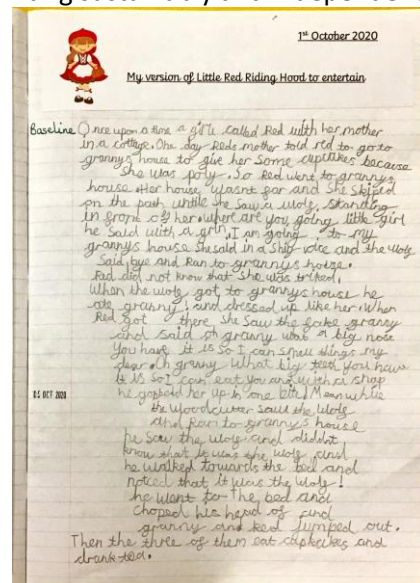 1st October 2020
My version of Little Red Riding Hood to entertain
Baseline Once upon a time a girl called Red with her mother
in a cottage. One day Reds mother told red to go to
granny's house to give her some cupcakes because
she was poly. So Red went to grannys
house. Her house wasnt far and she skiped
on the path untile she saw a wolf, standing
in front off her. where are you going little girl
he said with a grin. I am going to my
grannys house she said in a shy voice and the wolf
said, bye and Ran to grannys house.
Red did not know that she was triked.
When the wolf got to grannys house he
ate granny and dressed up like her. When
Red got there she saw the fake granny
and said oh granny what a big nose
You have it is so I can smell things my
dear. oh granny what big teeth you have
It is so I can eat you and with a snap
he gobbeld her up in one bite. Meanwhile
05 OCT 2020
the woodcutter saw the wolf
and Ran to grannys house
he saw the wolf and didnt
know that it was the wolf and
he walked towards the bed and
noticed that it was the wolf!
he went to the bed and
choped his head of and
granny and Red jumped out.
Then the three of them eat cupkakes and
drank tea.